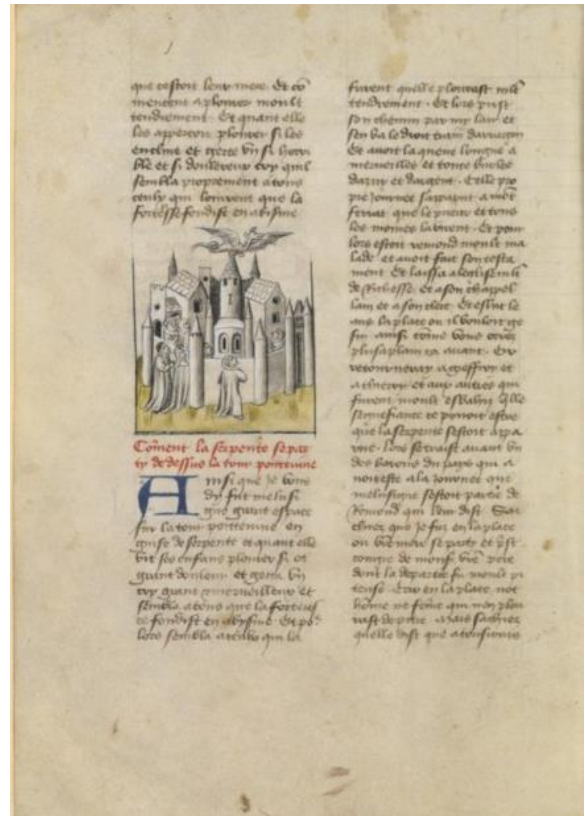 que cestoit leur mere. Et cō
mencent a plourer moult
tendrement. Et quant elle
les apperceut plourer si les
encline et gecte vn si horri
ble et si douleureux cry quil
sembla proprement a tous
ceulx qui louirent que la
forteresse fondist en abisme
Cōment la serpente se par
ty de dessus la tour poitteuine
Ainsi que Je vous
dy fut melusi
gne grant espace
sur la tour poitteuine en
guise de serpente et quant elle
vit ses enfans plourer si ot
grant douleur et gecta vn
cry grant et merueilleux et
sembla a tous que la forteres
se fondist en abysme. Et pō
lors sembla a ceulx qui la
furent quelle plourast mlt
tendrement. Et lors prist
son chemin par my lair et
sen va le droit darragon
Et auoit la queue longue a
merueilles et toute burlee
dazur et dargent. Celle pro
pre Journee sapparut a mōt
ferrat que le prieur et tous
les moines la virent. Et pour
lors estoit remond moult ma
lade et auoit fait son testa
ment. Et laissa a leglise
de richesse. Et a son chappel
lain et a son clerc. Et
la place ou il vouloit ge
sir ainsi cōme vous orrez
plus a plain ca auant. Cy
retourneray a geffroy et
a thierry et aux autres qui
furent moult esbahiz
signifiance ce pouoit estre
que la serpente sestoit appa
rue. Lors se traist auant vn
des barons du pays qui a
uoit este a la Journee que
melusigne sestoit partie de
Remond qui leur dist. Sai
chiez que je fuz en la place
ou vre mere se party et prist
congie de monsr vre pere
dont la departie fu moult pi
teuse. en la place not
hōme ne fēme qui nen plou
rast de pitie. Mais saichiez
quelle dist que a tousiours